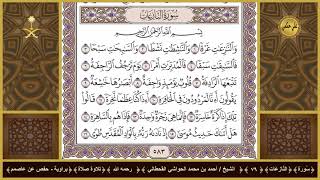 سُورَةُ النَّازِعَاتِ
بِسْمِ ٱللَّهِ ٱلرَّحْمَٰنِ ٱلرَّحِيمِ
وَٱلنَّٰزِعَٰتِ غَرْقًا ١ وَٱلنَّٰشِطَٰتِ نَشْطًا ٢ وَٱلسَّٰبِحَٰتِ سَبْحًا ٣
فَٱلسَّٰبِقَٰتِ سَبْقًا ٤ فَٱلْمُدَبِّرَٰتِ أَمْرًا ٥ يَوْمَ تَرْجُفُ ٱلرَّاجِفَةُ ٦
تَتْبَعُهَا ٱلرَّادِفَةُ ٧ قُلُوبٌ يَوْمَئِذٍ وَاجِفَةٌ ٨ أَبْصَٰرُهَا خَٰشِعَةٌ ٩
يَقُولُونَ أَءِنَّا لَمَرْدُودُونَ فِى ٱلْحَافِرَةِ ١٠ أَءِذَا كُنَّا عِظَٰمًا نَّخِرَةً ١١ قَالُوا۟
تِلْكَ إِذًا كَرَّةٌ خَاسِرَةٌ ١٢ فَإِنَّمَا هِىَ زَجْرَةٌ وَٰحِدَةٌ ١٣ فَإِذَا هُم بِٱلسَّاهِرَةِ ١٤
هَلْ أَتَىٰكَ حَدِيثُ مُوسَىٰٓ ١٥ إِذْ نَادَىٰهُ رَبُّهُۥ بِٱلْوَادِ ٱلْمُقَدَّسِ طُوًى ١٦
٥٨٣
﴿ سورة ﴾ ﴿ النَّازعات ﴾ ﴿ ٧٩ ﴾ ﴿ الشيخ / أحمد بن محمد الحواشي القحطاني ﴾ ﴿ رحمه الله ﴾ ﴿ تلاوة صلاة ﴾ ﴿ برواية - حفص عن عاصم ﴾